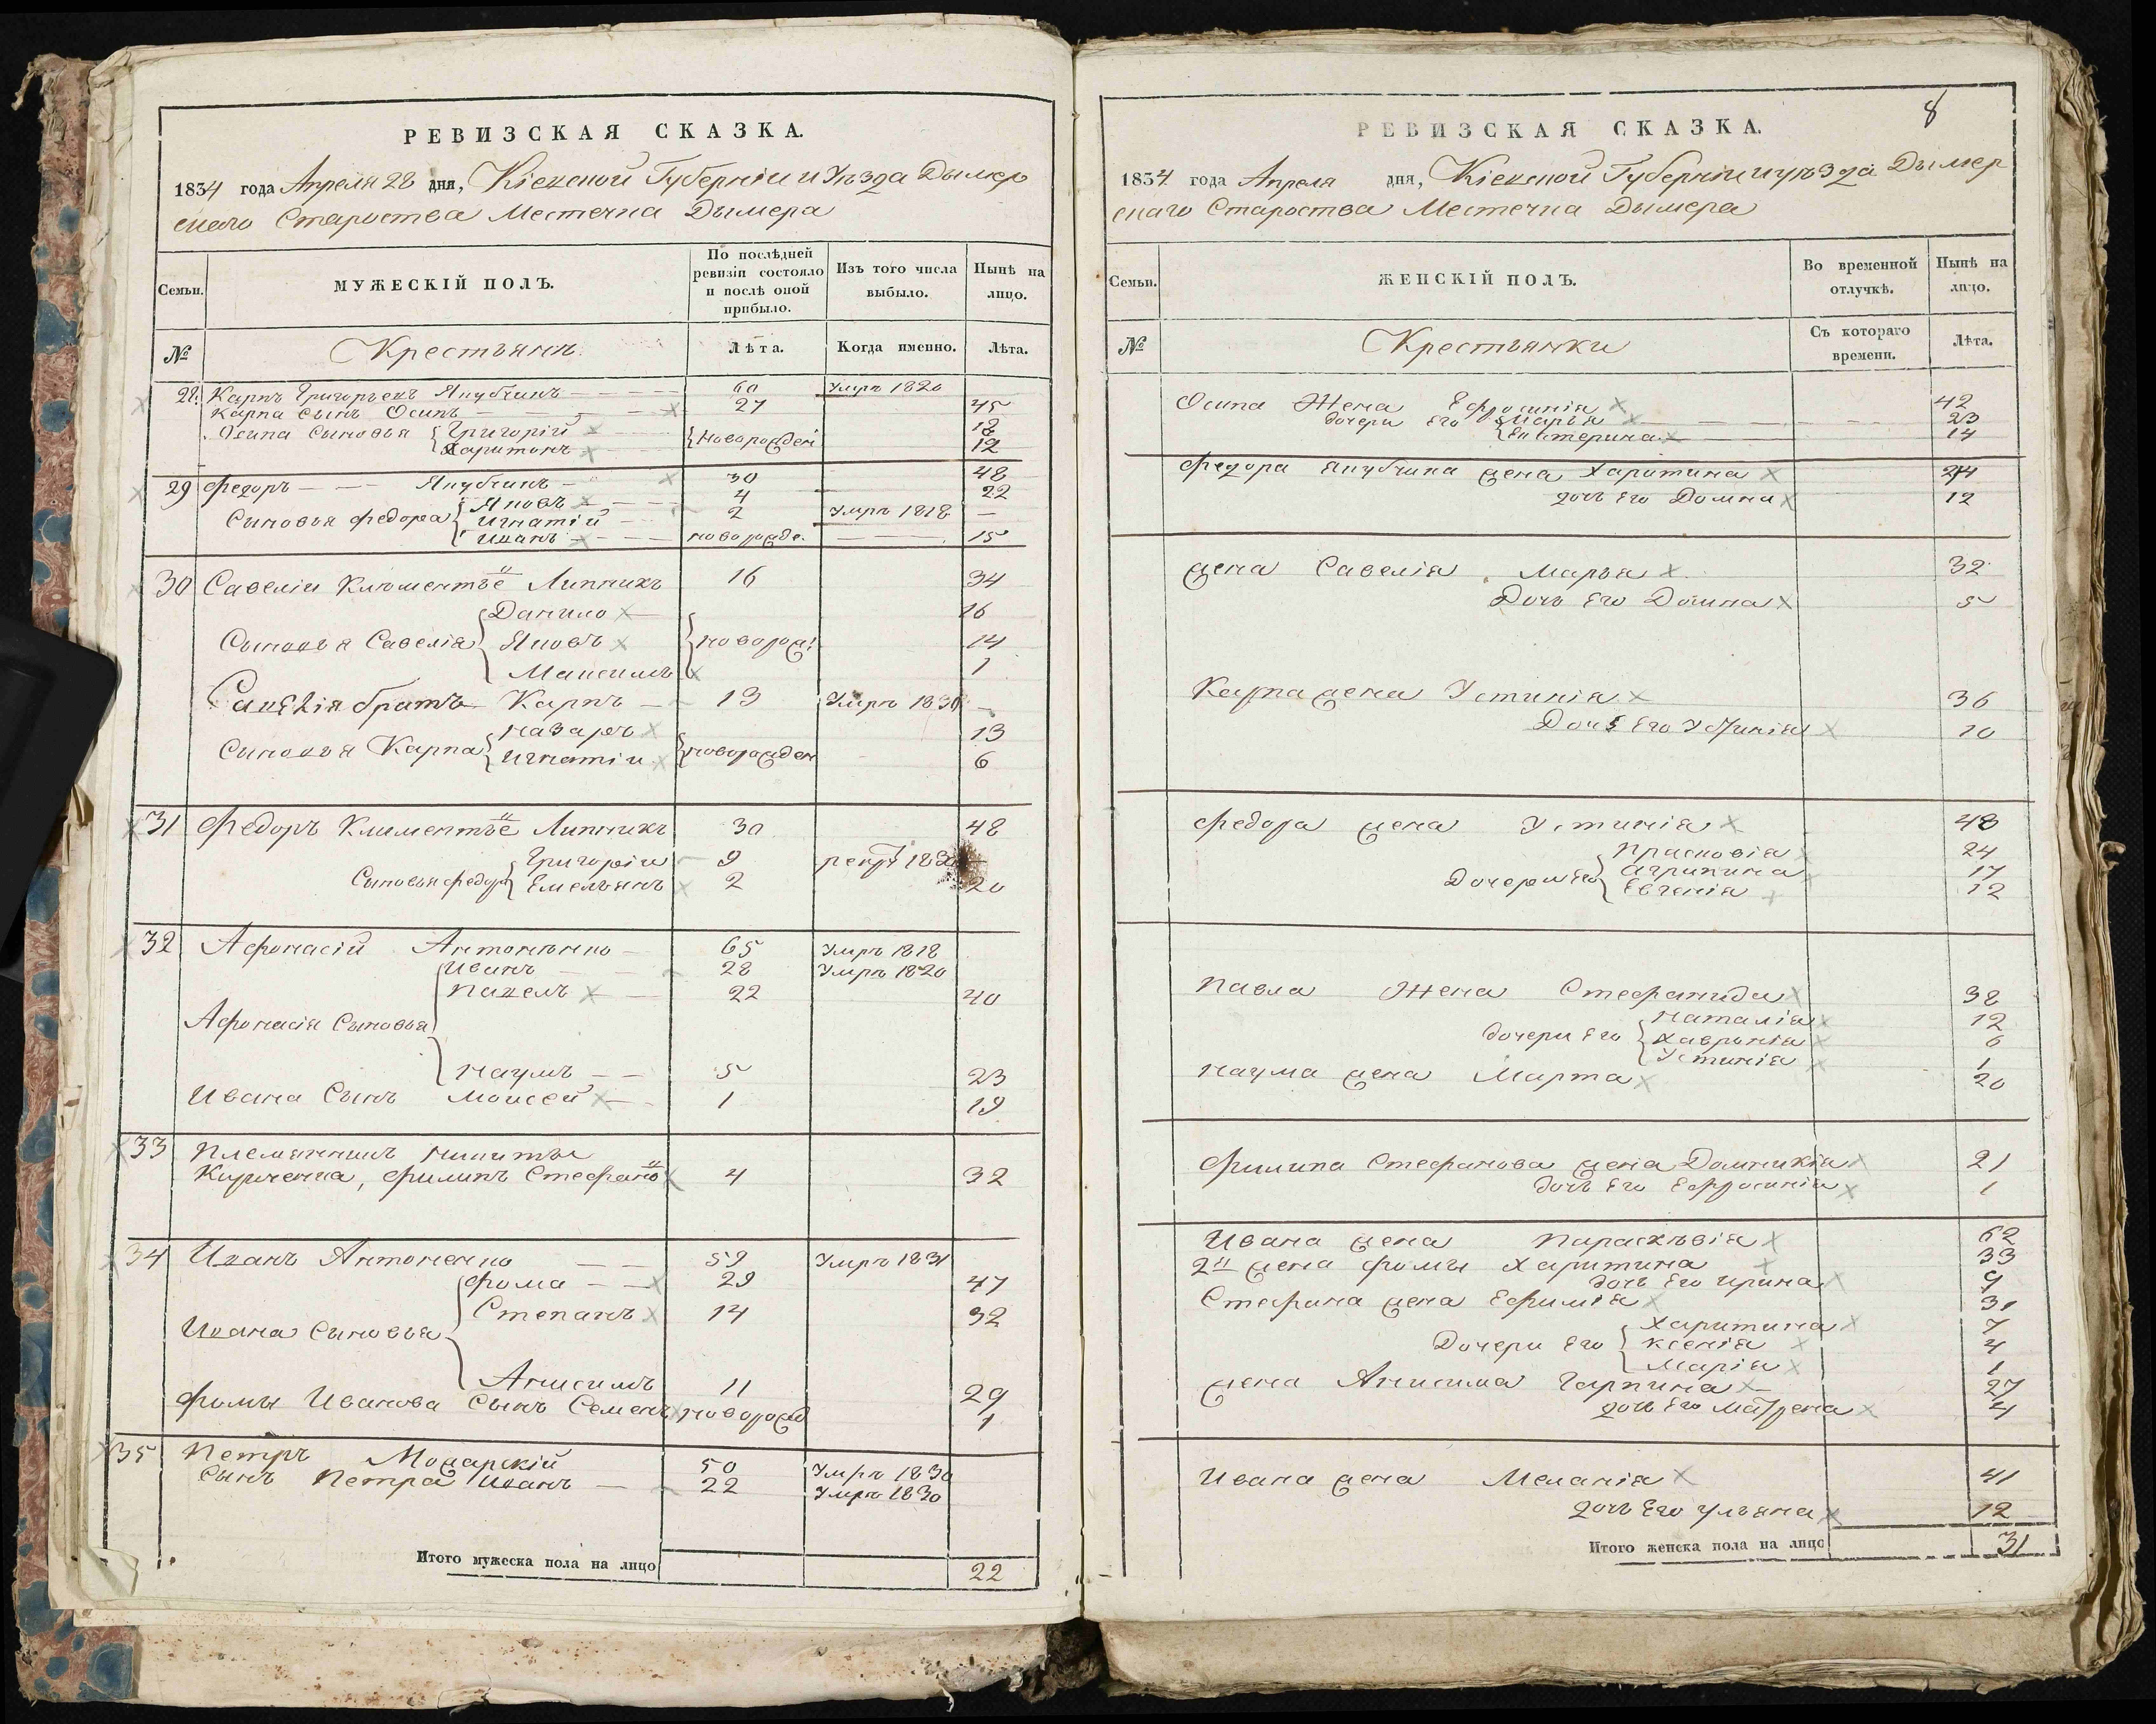 РЕВИЗСКАЯ СКАЗКА.
1834 года Апреля 28 дня, Кіевской Губерніи и Уѣзда Дымер
скаго Староства Местечка Дымера
Семьи. МУЖЕСКІЙ ПОЛЪ. По послѣдней ревизіи состояло и послѣ оной прибыло. Изъ того числа выбыло. Нынѣ на лицо.
№ Крестьянъ Лѣта. Когда именно. Лѣта.
28. Карпъ Григорьевъ Якубчикъ 60 Умръ 1820
Карпа Сынъ Осипъ 27 45
Осипа Сыновья { Григорій { новорожден 18
Харитонъ 12
29 Федоръ Якубчикъ 30 48
Сыновья Федора { Яковъ 4 22
Игнатій 2 Умръ 1818 —
Иванъ новорожде. 15
30 Савелій Климентье Липникъ 16 34
Сыновья Савелія { Данило { новорож: 16
Яковъ 14
Максимъ 1
Савелія братъ Карпъ 13 Умръ 1830 —
Сыновья Карпа { Назаръ { новорожден 13
Игнатій 6
31 Федоръ Климентье Липникъ 30 48
Сыновья Федора { Григорій 9 рекр
Емельянъ 2 20
32 Афонасій Антоненко 65 Умръ 1818
Иванъ 28 Умръ 1820
Павелъ 22 40
Афонасія Сыновья
Наумъ 5 23
Ивана Сынъ Моисей 1 19
33 Племянникъ Никиты
Кириченка, Филипъ Стефано 4 32
34 Иванъ Антоненко 59 Умръ 1831
Фома 29 47
Степанъ 14 32
Ивана Сыновья
Анисимъ 11 29
Фомы Иванова Сынъ Семенъ новорожд 1
35 Петръ Можарскій 50 Умръ 1830
Сынъ Петра Иванъ 22 Умръ 1830
Итого мужеска пола на лицо 22
8
РЕВИЗСКАЯ СКАЗКА.
1834 года Апреля дня, Кіевской Губерніи и уѣзда Дымер
скаго Староства Местечка Дымера
Семьи. ЖЕНСКІЙ ПОЛЪ. Во временной отлучкѣ. Нынѣ на лицо.
№ Крестьянки Съ котораго времени. Лѣта.
Осипа Жена Ефросинія 42
дочери Его { Марья 23
Екатерина 14
Федора Якубчика жена Харитина 44
дочь Его Домна 12
жена Савелія Марья 32
Дочь Его Домна 5
Карпа жена Устинія 36
Дочь Его 10
Федора жена Устинія 48
Дочери Его { Прасковія 24
Агрипина 17
Евгенія 12
Павла Жена Стефанида 38
дочери Его { Наталія 12
Хавронія 6
Устинія 1
Наума жена Марта 20
Филипа Стефанова жена Домникія 21
дочь Его Ефросинія 1
Ивана жена Параскѣвія 62
2я жена Фомы Харитина 33
дочь Его Ирина 9
Стефана жена Ефимія 30
Харитина 7
Дочери Его { Ксенія 4
Марія 1
жена Анисима Гарпина 27
дочь Его Матрена 4
Ивана жена Меланія 41
дочь Его Ульяна 12
Итого женска пола на лицо 31